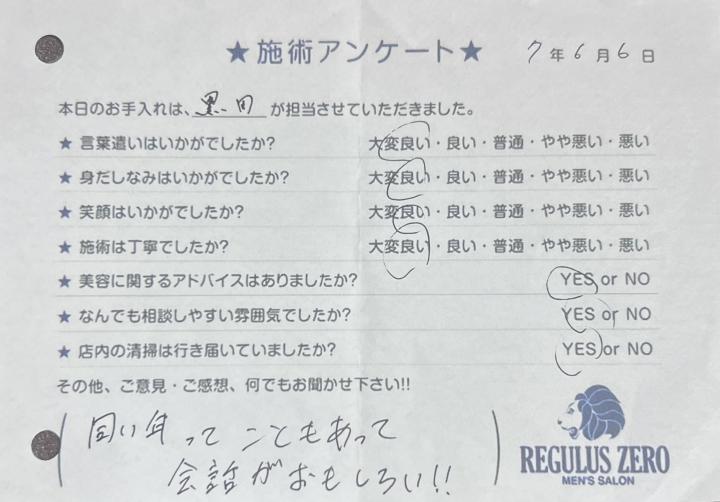 ★施術アンケート★ 7年6月6日
本日のお手入れは、黒田が担当させていただきました。
★ 言葉遣いはいかがでしたか? 大変良い・良い・普通・やや悪い・悪い
★ 身だしなみはいかがでしたか? 大変良い・良い・普通・やや悪い・悪い
★ 笑顔はいかがでしたか? 大変良い・良い・普通・やや悪い・悪い
★ 施術は丁寧でしたか? 大変良い・良い・普通・やや悪い・悪い
★ 美容に関するアドバイスはありましたか? YES or NO
★ なんでも相談しやすい雰囲気でしたか? YES or NO
★ 店内の清掃は行き届いていましたか? YES or NO
その他、ご意見・ご感想、何でもお聞かせ下さい!!
同い年ってこともあって
会話がおもしろい!!
REGULUS ZERO
MEN'S SALON